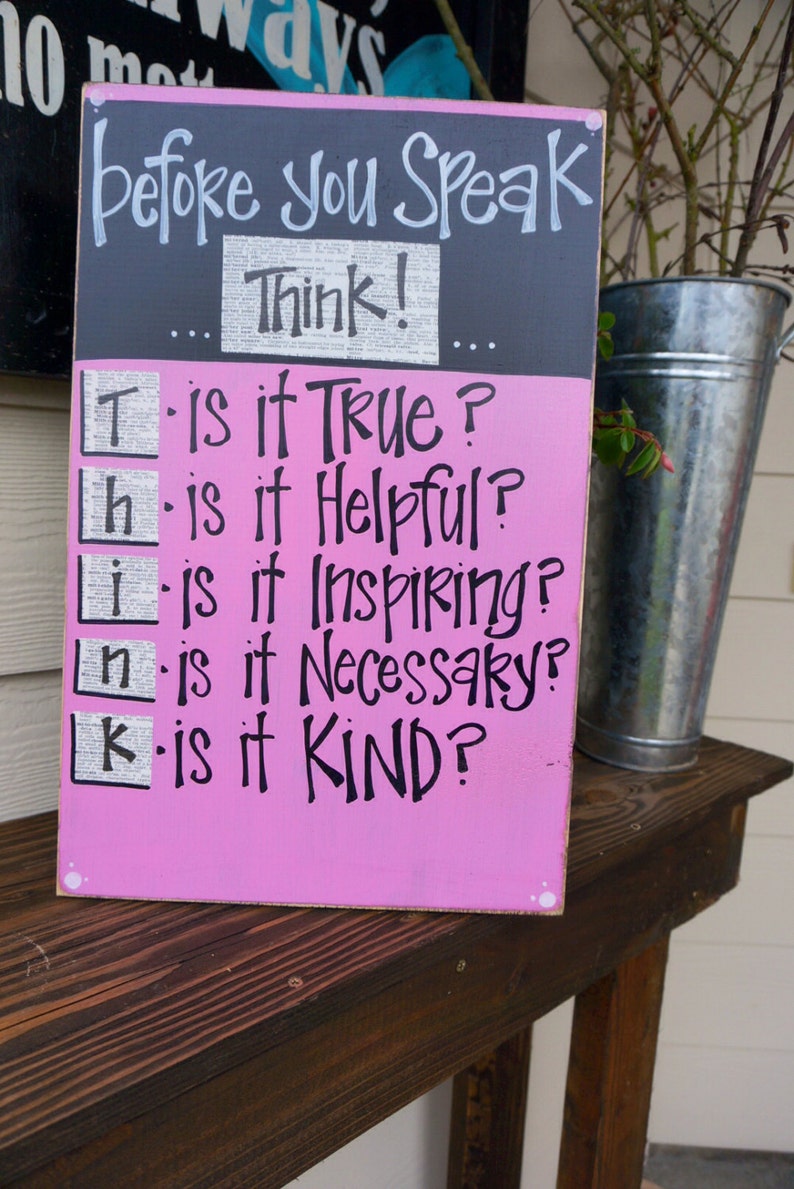 always
no matt
before you speak
Think!
... ...
T • is it TRUE?
h • is it Helpful?
i • is it Inspiring?
n • is it Necessary?
K • is it KIND?